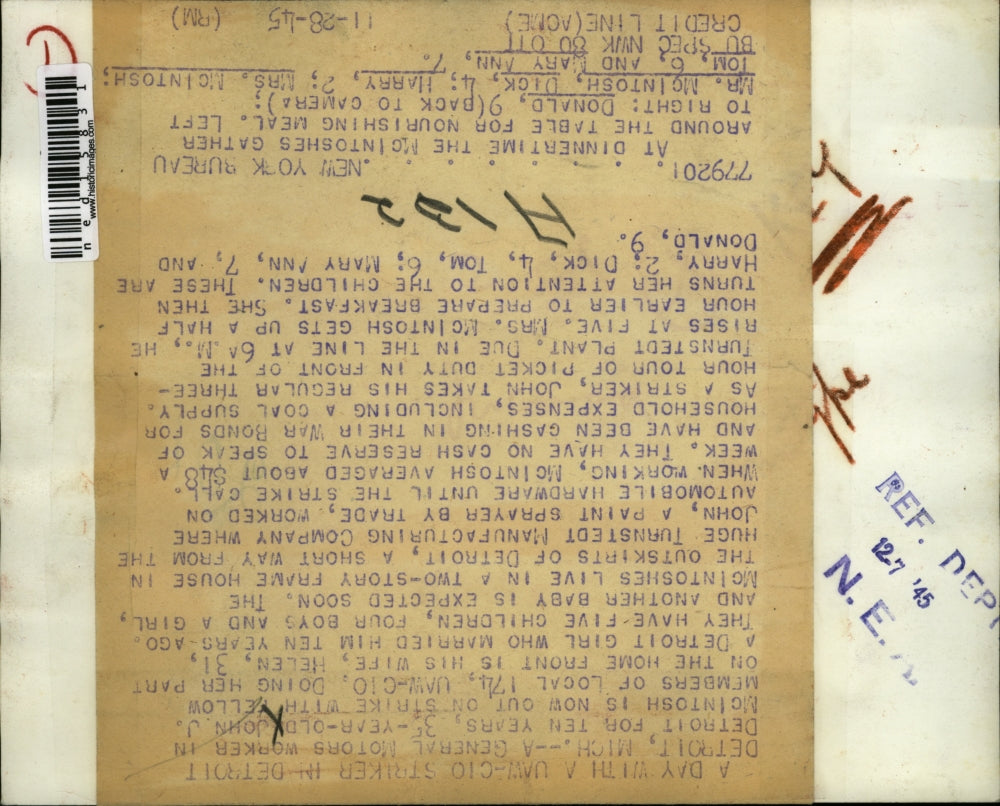 A DAY WITH A UAW-CIO STRIKER IN DETROIT
DETROIT, MICH.--A GENERAL MOTORS WORKER IN
DETROIT FOR TEN YEARS, 35-YEAR-OLD JOHN J.
MCINTOSH IS NOW OUT ON STRIKE WITH FELLOW
MEMBERS OF LOCAL 174, UAW-CIO. DOING HER PART
ON THE HOME FRONT IS HIS WIFE, HELEN, 31,
A DETROIT GIRL WHO MARRIED HIM TEN YEARS AGO.
THEY HAVE FIVE CHILDREN, FOUR BOYS AND A GIRL,
AND ANOTHER BABY IS EXPECTED SOON. THE
MCINTOSHES LIVE IN A TWO-STORY FRAME HOUSE IN
THE OUTSKIRTS OF DETROIT, A SHORT WAY FROM THE
HUGE TURNSTEDT MANUFACTURING COMPANY WHERE
JOHN, A PAINT SPRAYER BY TRADE, WORKED ON
AUTOMOBILE HARDWARE UNTIL THE STRIKE CALL.
WHEN WORKING, MCINTOSH AVERAGED ABOUT $48 A
WEEK. THEY HAVE NO CASH RESERVE TO SPEAK OF
AND HAVE BEEN CASHING IN THEIR WAR BONDS FOR
HOUSEHOLD EXPENSES, INCLUDING A COAL SUPPLY.
AS A STRIKER, JOHN TAKES HIS REGULAR THREE-
HOUR TOUR OF PICKET DUTY IN FRONT OF THE
TURNSTEDT PLANT. DUE IN THE LINE AT 6 A.M., HE
RISES AT FIVE. MRS. MCINTOSH GETS UP A HALF
HOUR EARLIER TO PREPARE BREAKFAST. SHE THEN
TURNS HER ATTENTION TO THE CHILDREN. THESE ARE
HARRY, 2; DICK, 4, TOM, 6; MARY ANN, 7, AND
DONALD, 9.
H 122
779201 . . . . . . . NEW YORK BUREAU
AT DINNERTIME THE MCINTOSHES GATHER
AROUND THE TABLE FOR NOURISHING MEAL. LEFT
TO RIGHT: DONALD, 9 (BACK TO CAMERA);
MR. MCINTOSH, DICK, 4; HARRY, 2; MRS. MCINTOSH;
TOM, 6, AND MARY ANN, 7.
BU SPEC NWK 80 OTT
CREDIT LINE (ACME) 11-28-45 (RM)
ned15831
www.historicimages.com
REF. DEPT
12-7 '45
N. E.